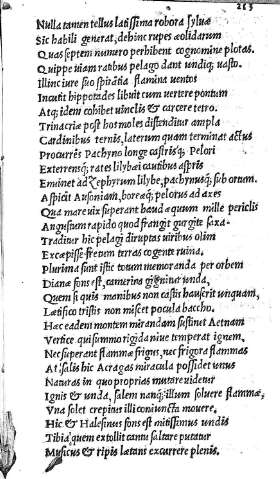 213
Nulla tamen tellus latissima robora syluæ
Sic habili generat, dehinc rupes æolidarum
Quas septem numero perhibent cognomine plotas.
Quippe uiam ratibus pelago dant undiq; uasto.
Illinc iure suo spirãtia flamina uentos
Incutit hippotades libuit cum uertere pontum
Atq; idem cohibet uinclis & carcere tetro.
Trinacriæ post hos moles distenditur ampla
Cardinibus ternis, laterum quam terminat actus
Procurrẽs Pachyno longe castrisq; Pelori
Exterrensq; rates lilybæi cautibus aspris
Eminet ad Zephyrum lilybe, pachynusq; sub ortum.
Aspicit Ausoniam, boreãq; pelorus ad axes
Qua mare uix superant haud æquum mille periclis
Angustum rapido quod frangit gurgite saxa.
Traditur hic pelagi diruptas uiribus olim
Excæpisse fretum terras cogente ruina.
Plurima sunt istic totum memoranda per orbem
Dianæ fons est, camerina gignitur unda,
Quem si quis manibus non castis hauserit unquam,
Lætifico tristis non miscet pocula baccho.
Hæc eadem montem mirandam sustinet Aetnam
Vertice qui summo rigida niue temperat ignem,
Nec superant flammæ frigus, nec frigora flammas
At salis hic Acragas miracula possidet unus
Naturas in quo proprias mutare uidetur
Ignis & unda, salem nanq; illum soluere flammæ,
Vna solet crepitus illi coniuncta mouere.
Hic & Halesinus fons est mitissimus undis
Tibia quem extollit cantu saltare putatur
Musicus & ripis lætans excurrere plenis.